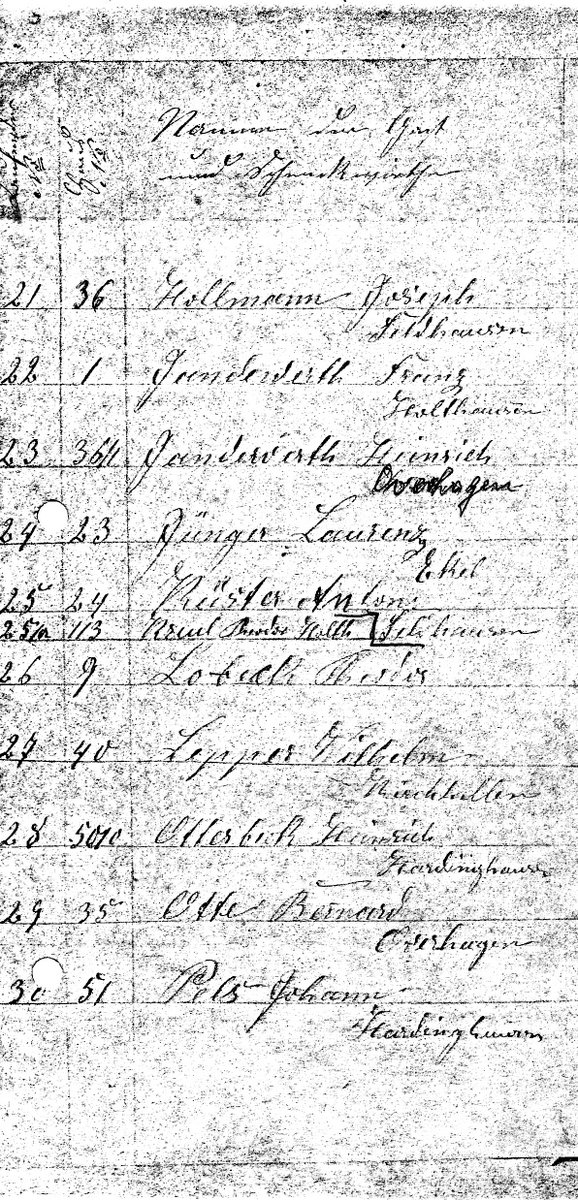 Laufende No
Haus No
Namen der Gast
und Schenkwirthe
21 36 Hollmann Joseph
Feldhausen
22 1 Janderverth Franz
Holthausen
23 Janderverth Heinrich
Overhagen
24 23 Jünger Laurenz
Ekel
25 24 Küster Anton
25/a 113 Theodor Holth. Feldhausen
26 9 Lobeck Theodor
27 40 Lepper Wilhelm
Kirchhellen
28 Otterbeck Heinrich
Hardinghausen
29 35 Otte Bernard
Overhagen
30 51 Pels Johann
Hardinghausen